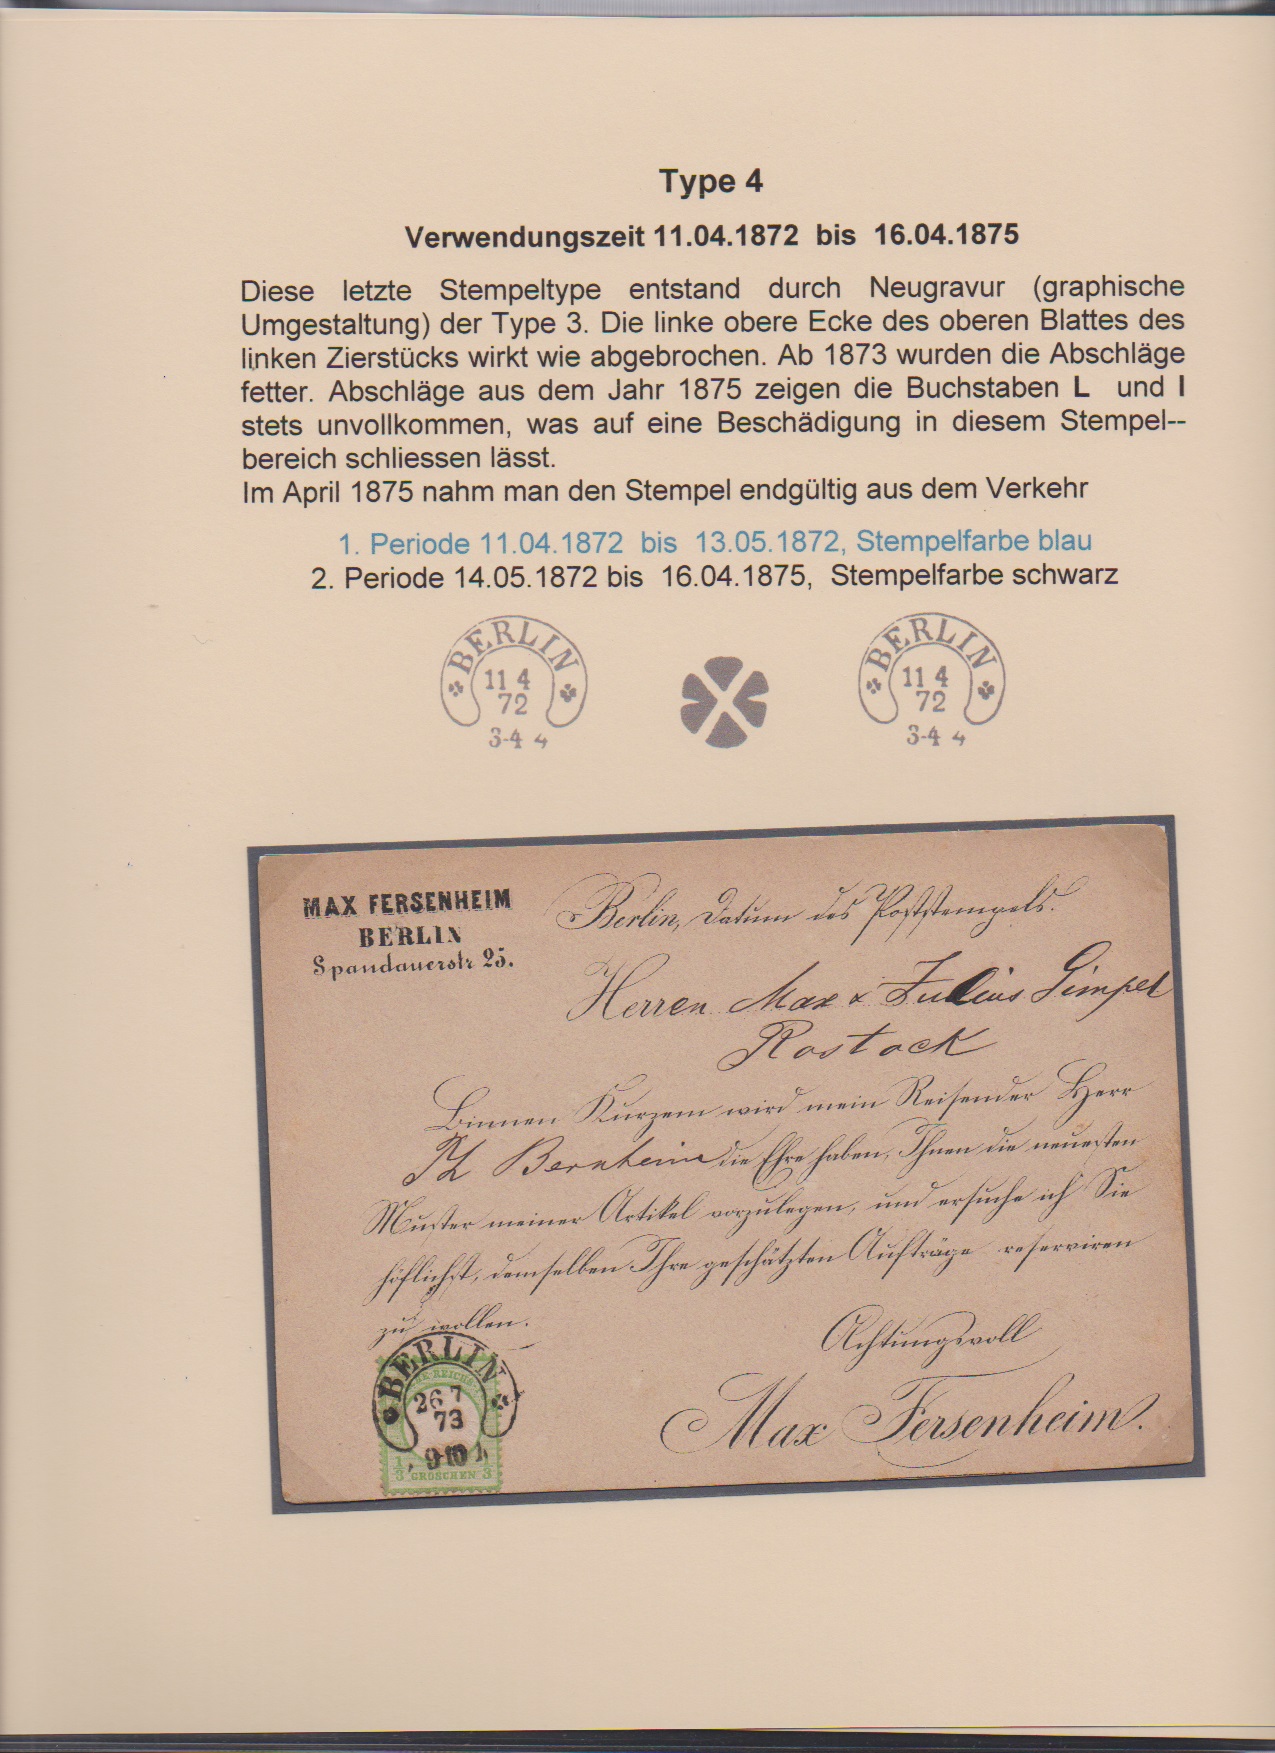 Type 4
Verwendungszeit 11.04.1872 bis 16.04.1875
Diese letzte Stempeltype entstand durch Neugravur (graphische
Umgestaltung) der Type 3. Die linke obere Ecke des oberen Blattes des
linken Zierstücks wirkt wie abgebrochen. Ab 1873 wurden die Abschläge
fetter. Abschläge aus dem Jahr 1875 zeigen die Buchstaben L und I
stets unvollkommen, was auf eine Beschädigung in diesem Stempel--
bereich schliessen lässt.
Im April 1875 nahm man den Stempel endgültig aus dem Verkehr
1. Periode 11.04.1872 bis 13.05.1872, Stempelfarbe blau
2. Periode 14.05.1872 bis 16.04.1875, Stempelfarbe schwarz
BERLIN
11 4
72
3-4 4
BERLIN
11 4
72
3-4 4
MAX FERSENHEIM
BERLIN
Spandauerstr 25.
Berlin, Datum des Poststempels.
Herren Max & Julius Gimpel
Rostock
Binnen Kurzem wird mein Reisender Herr
Th Bernheim die Ehre haben, Ihnen die neuesten
Muster meiner Artikel vorzulegen, und ersuche ich Sie
höflichst, demselben Ihre geschätzten Aufträge reserviren
zu wollen.
Achtungsvoll
Max Fersenheim.
BERLIN
26 7
73
9-10
1/3 GROSCHEN 1/3